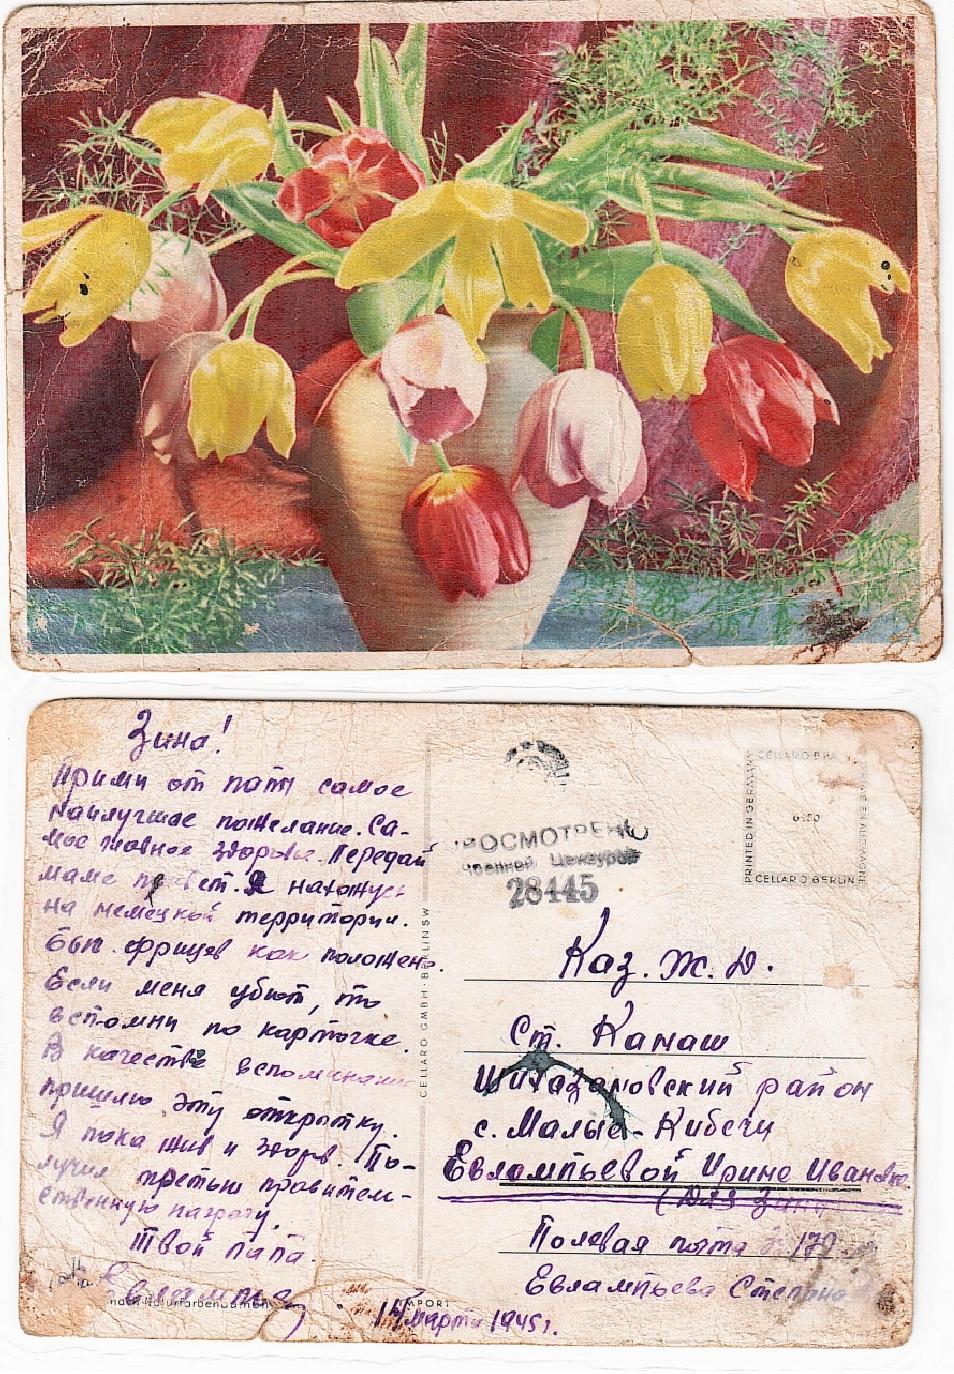 Зина!
Прими от папы самое
наилучшее пожелание. Са-
мое главное здоровье. Передай
маме привет. Я нахожусь
на немецкой территории.
бьем фрицев как положено.
Если меня убьют, то
вспомни по карточке.
В качестве вспоминание
пришлю эту открытку.
Я пока жив и здоров. По-
лучил третью правител-
ственную награду.
Твой папа.
Евлампьев
nach Naturfarbenaufnahme
IMPORT
14 марта 1945 г.
CELLARO GMBH · BERLIN SW
ПРОСМОТРЕНО
Военной Цензурой
28445
PRINTED IN GERMANY
CELLARO BERLIN
CELLARO BERLIN
Каз. Ж. Д.
Ст. Канаш
Шихазановский район
с. Малые-Кибечи
Евлампьевой Ирине Ивановне
(Для Зины)
Полевая почта
Евлампьева Степана